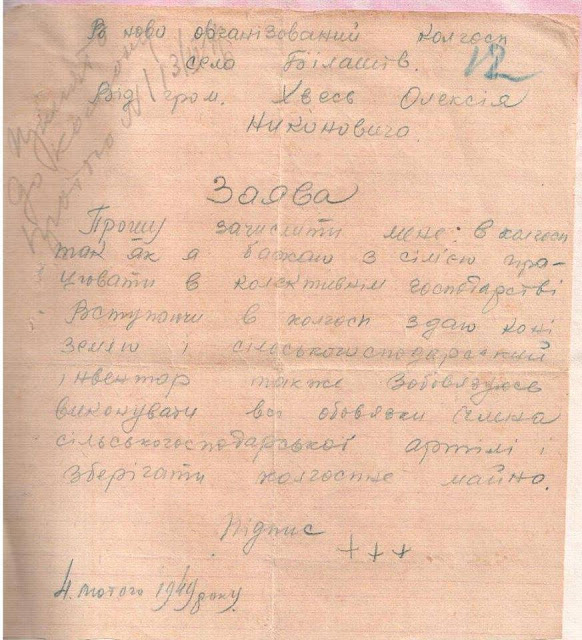 В ново організований колгосп
село Білашів.
12
Від гром. Хвесь Олексія
Никоновича.
Заява
Прошу зачислити мене в колгосп
так як я бажаю з сім'єю пра-
цювати в колективнім господарстві
Вступаючи в колгосп здаю коні
землю і сільськогосподарский
інвентар также зобовязуюсь
виконувати всі обовязки члена
сільськогосподарської артілі і
зберігати колгоспне майно.
Підпис
+ + +
4. лютого 1949 року.
Принят
до колгоспу